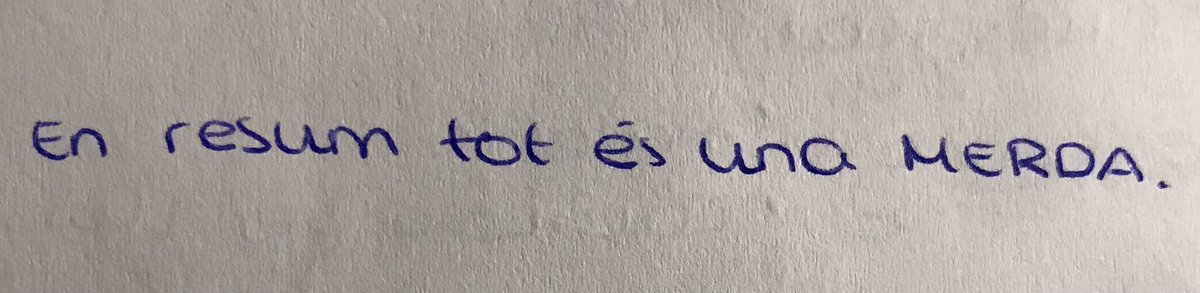 En resum tot és una MERDA.